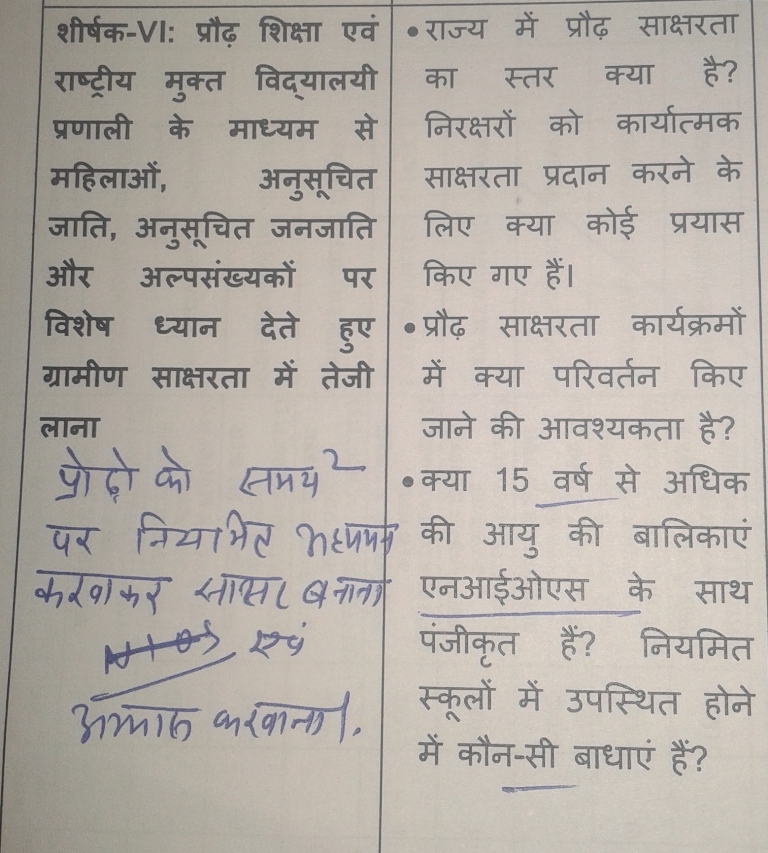 शीर्षक-VI: प्रौढ़ शिक्षा एवं
राष्ट्रीय मुक्त विद्यालयी
प्रणाली के माध्यम से
महिलाओं, अनुसूचित
जाति, अनुसूचित जनजाति
और अल्पसंख्यकों पर
विशेष ध्यान देते हुए
ग्रामीण साक्षरता में तेजी
लाना
प्रोढ़ो को समय 2
पर नियमित अध्ययन
करवाकर साक्षर बनाना
एवं
करवाना।
• राज्य में प्रौढ़ साक्षरता
का स्तर क्या है?
निरक्षरों को कार्यात्मक
साक्षरता प्रदान करने के
लिए क्या कोई प्रयास
किए गए हैं।
• प्रौढ़ साक्षरता कार्यक्रमों
में क्या परिवर्तन किए
जाने की आवश्यकता है?
• क्या 15 वर्ष से अधिक
की आयु की बालिकाएं
एनआईओएस के साथ
पंजीकृत हैं? नियमित
स्कूलों में उपस्थित होने
में कौन-सी बाधाएं हैं?